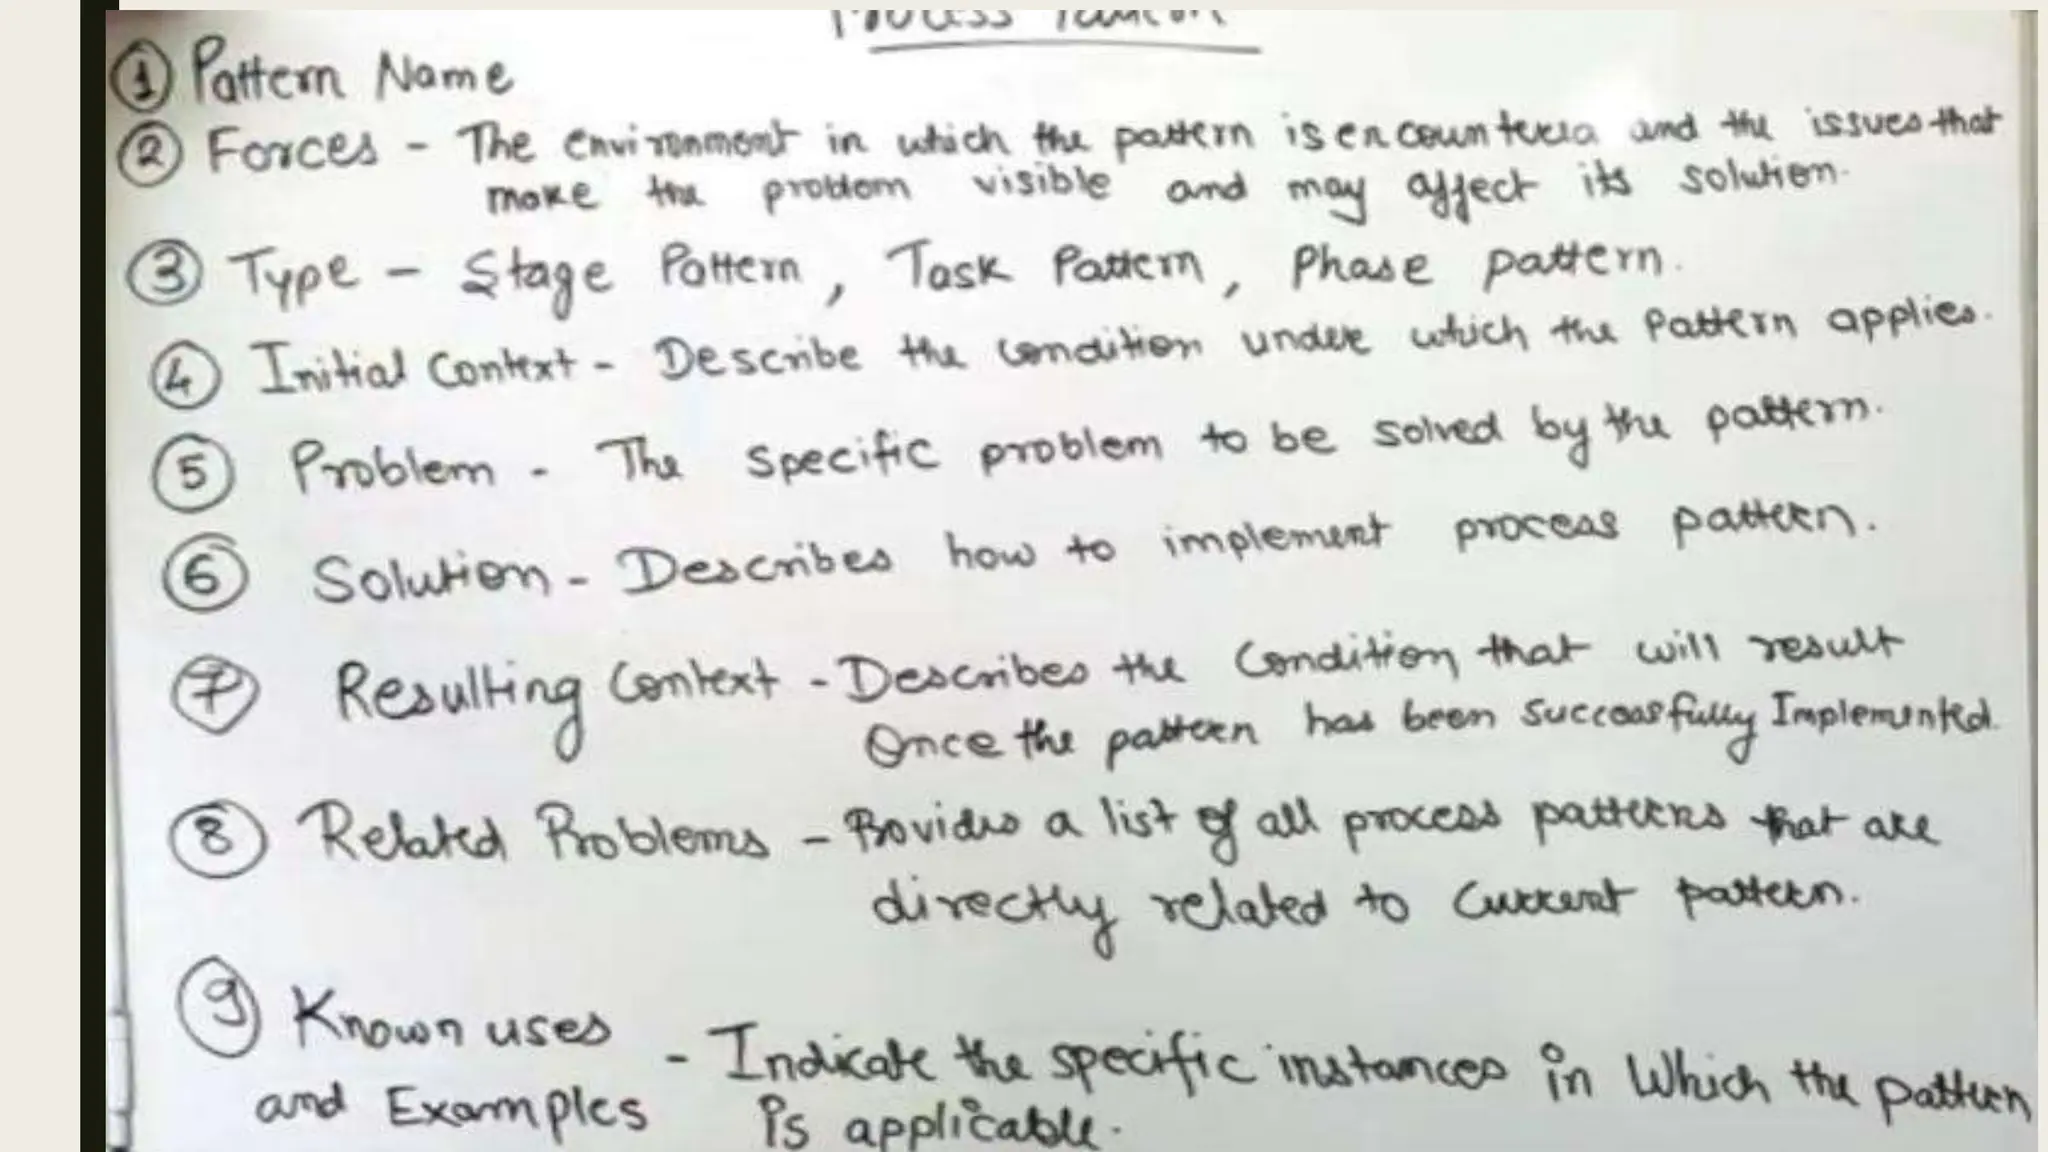 Process Pattern
① Pattern Name
② Forces - The environment in which the pattern is encountered and the issues that
make the problem visible and may affect its solution.
③ Type - Stage Pattern, Task Pattern, Phase pattern.
④ Initial Context - Describe the condition under which the Pattern applies.
⑤ Problem - The specific problem to be solved by the pattern.
⑥ Solution - Describes how to implement process pattern.
⑦ Resulting Context - Describes the Condition that will result
Once the pattern has been successfully Implemented.
⑧ Related Problems - Provides a list of all process patterns that are
directly related to Current pattern.
⑨ Known uses
and Examples - Indicate the specific instances in Which the pattern
is applicable.